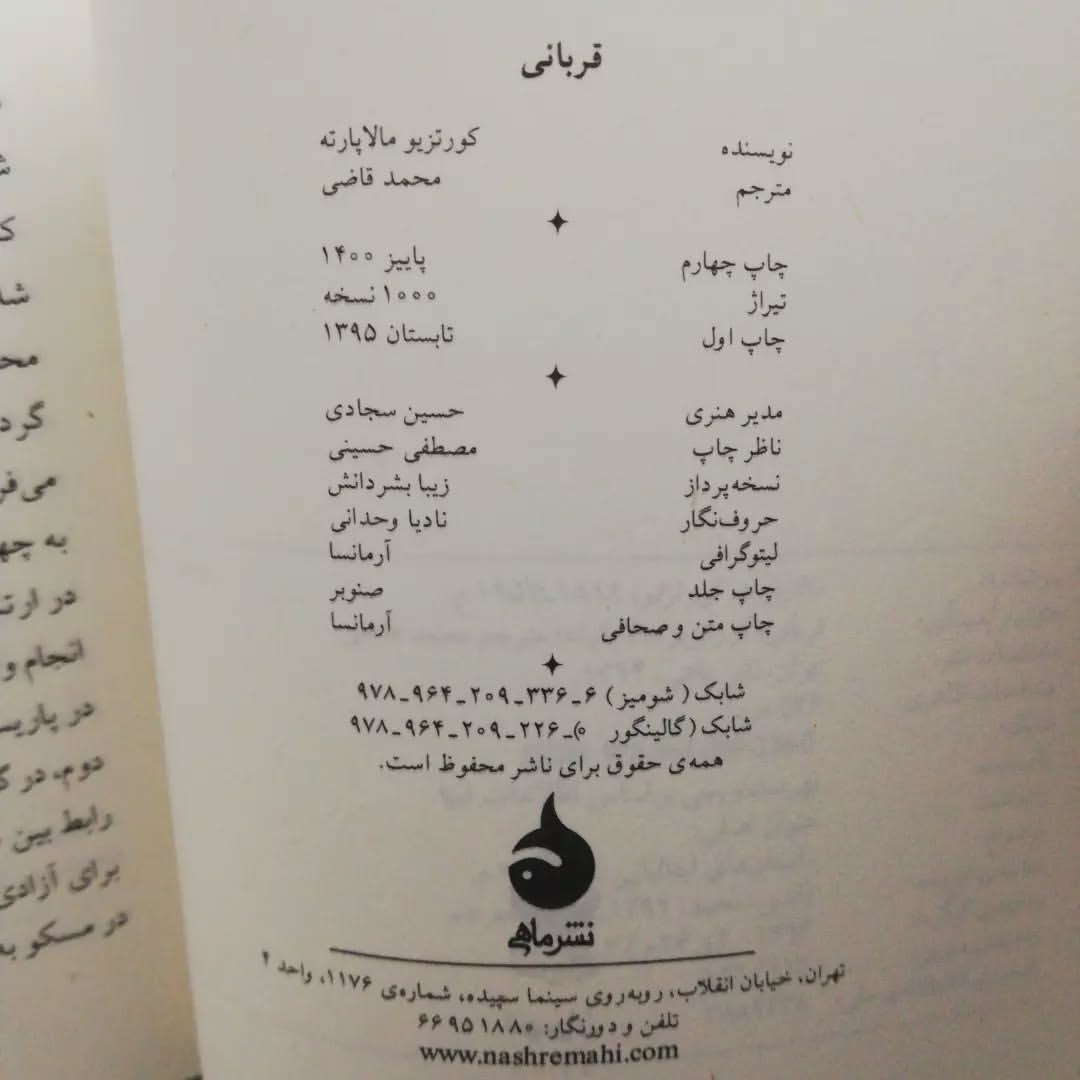 قربانی
نویسنده کورتزیو مالاپارته
مترجم محمد قاضی
چاپ چهارم پاییز ۱۴۰۰
تیراژ ۱۰۰۰ نسخه
چاپ اول تابستان ۱۳۹۵
مدیر هنری حسین سجادی
ناظر چاپ مصطفی حسینی
نسخه‌پرداز زیبا بشردانش
حروف‌نگار نادیا وحدانی
لیتوگرافی آرمانسا
چاپ جلد صنوبر
چاپ متن و صحافی آرمانسا
شابک (شومیز) ۶-۳۳۶-۲۰۹-۹۶۴-۹۷۸
شابک (گالینگور ۰)-۲۲۶-۲۰۹-۹۶۴-۹۷۸
همه‌ی حقوق برای ناشر محفوظ است.
نشر ماهی
تهران، خیابان انقلاب، روبه‌روی سینما سپیده، شماره‌ی ۱۱۷۶، واحد ۴
تلفن و دورنگار: ۶۶۹۵۱۸۸۰
www.nashremahi.com
گرد
به چه
در ارت
انجام و
در پاریس
دوم، در گ
رابط بین
برای آزادی
در مسکو به